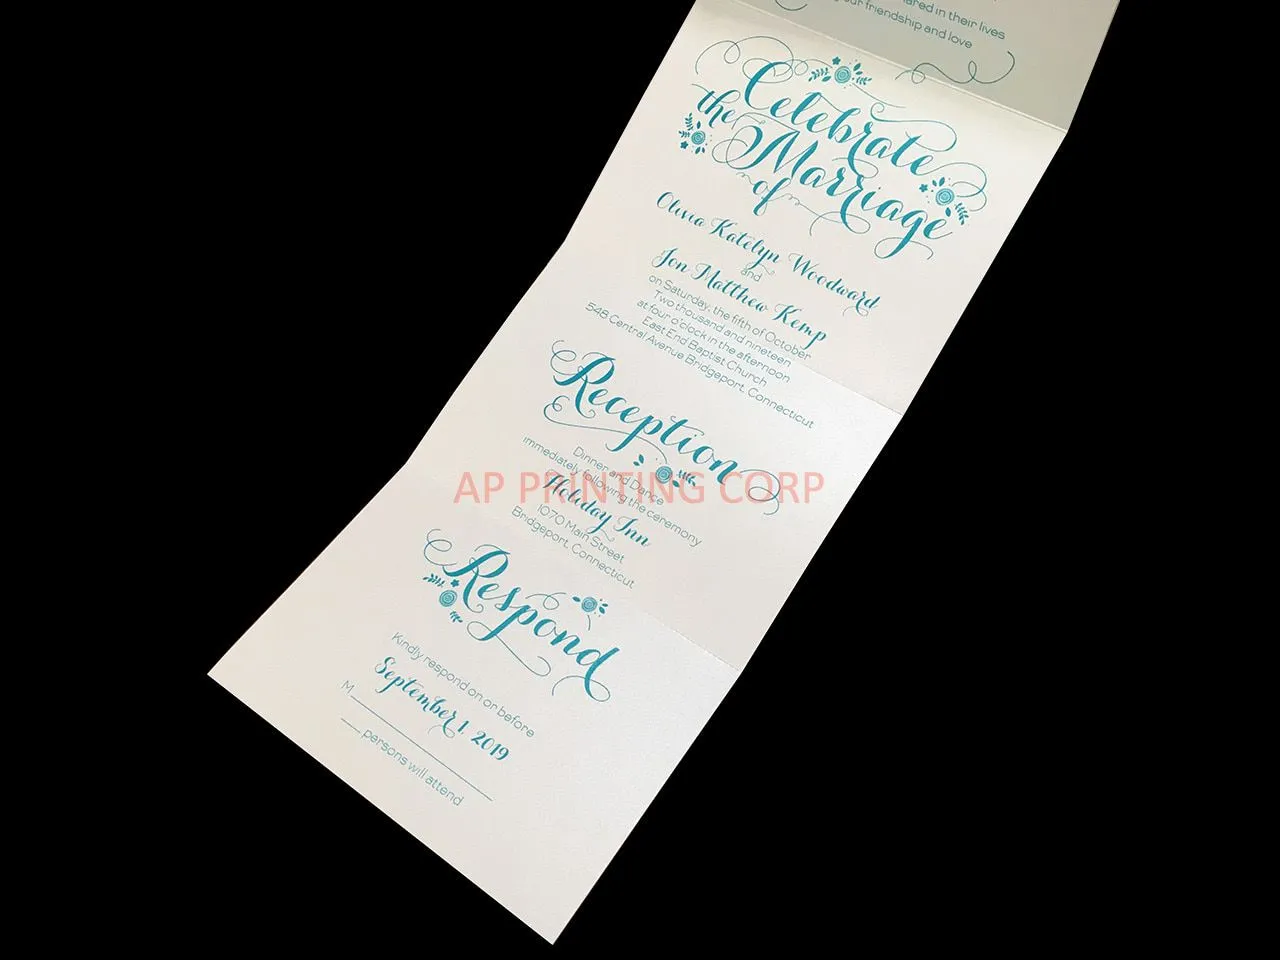 ared in their lives
your friendship and love
Celebrate
the Marriage
of
Olivia Katelyn Woodward
and
Jon Matthew Kemp
on Saturday, the fifth of October
Two thousand and nineteen
at four o'clock in the afternoon
East End Baptist Church
548 Central Avenue Bridgeport, Connecticut
Reception
Dinner and Dance
immediately following the ceremony
Holiday Inn
1070 Main Street
Bridgeport, Connecticut
AP PRINTING CORP
Respond
Kindly respond on or before
September 1, 2019
M
persons will attend